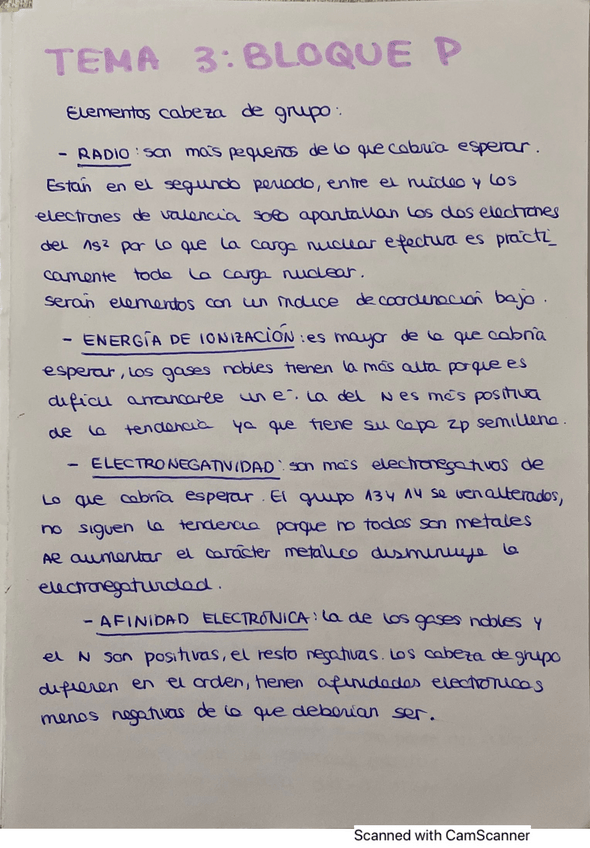 TEMA 3: BLOQUE P
Elementos cabeza de grupo:
- RADIO: son más pequeños de lo que cabría esperar.
Están en el segundo periodo, entre el núcleo y los
electrones de valencia solo apantallan los dos electrones
del 1s² por lo que la carga nuclear efectiva es prácti_
camente toda la carga nuclear.
serán elementos con un índice de coordinación bajo.
- ENERGÍA DE IONIZACIÓN: es mayor de lo que cabría
esperar, los gases nobles tienen la más alta porque es
difícil arrancarle un e⁻. La del N es más positiva
de la tendencia ya que tiene su capa 2p semillena.
- ELECTRONEGATIVIDAD: son más electronegativos de
lo que cabría esperar. El grupo 13 y 14 se ven alterados,
no siguen la tendencia porque no todos son metales
Al aumentar el carácter metálico disminuye la
electronegatividad.
- AFINIDAD ELECTRÓNICA: la de los gases nobles y
el N son positivas, el resto negativas. Los cabeza de grupo
difieren en el orden, tienen afinidades electrónicas
menos negativas de lo que deberían ser.
Scanned with CamScanner